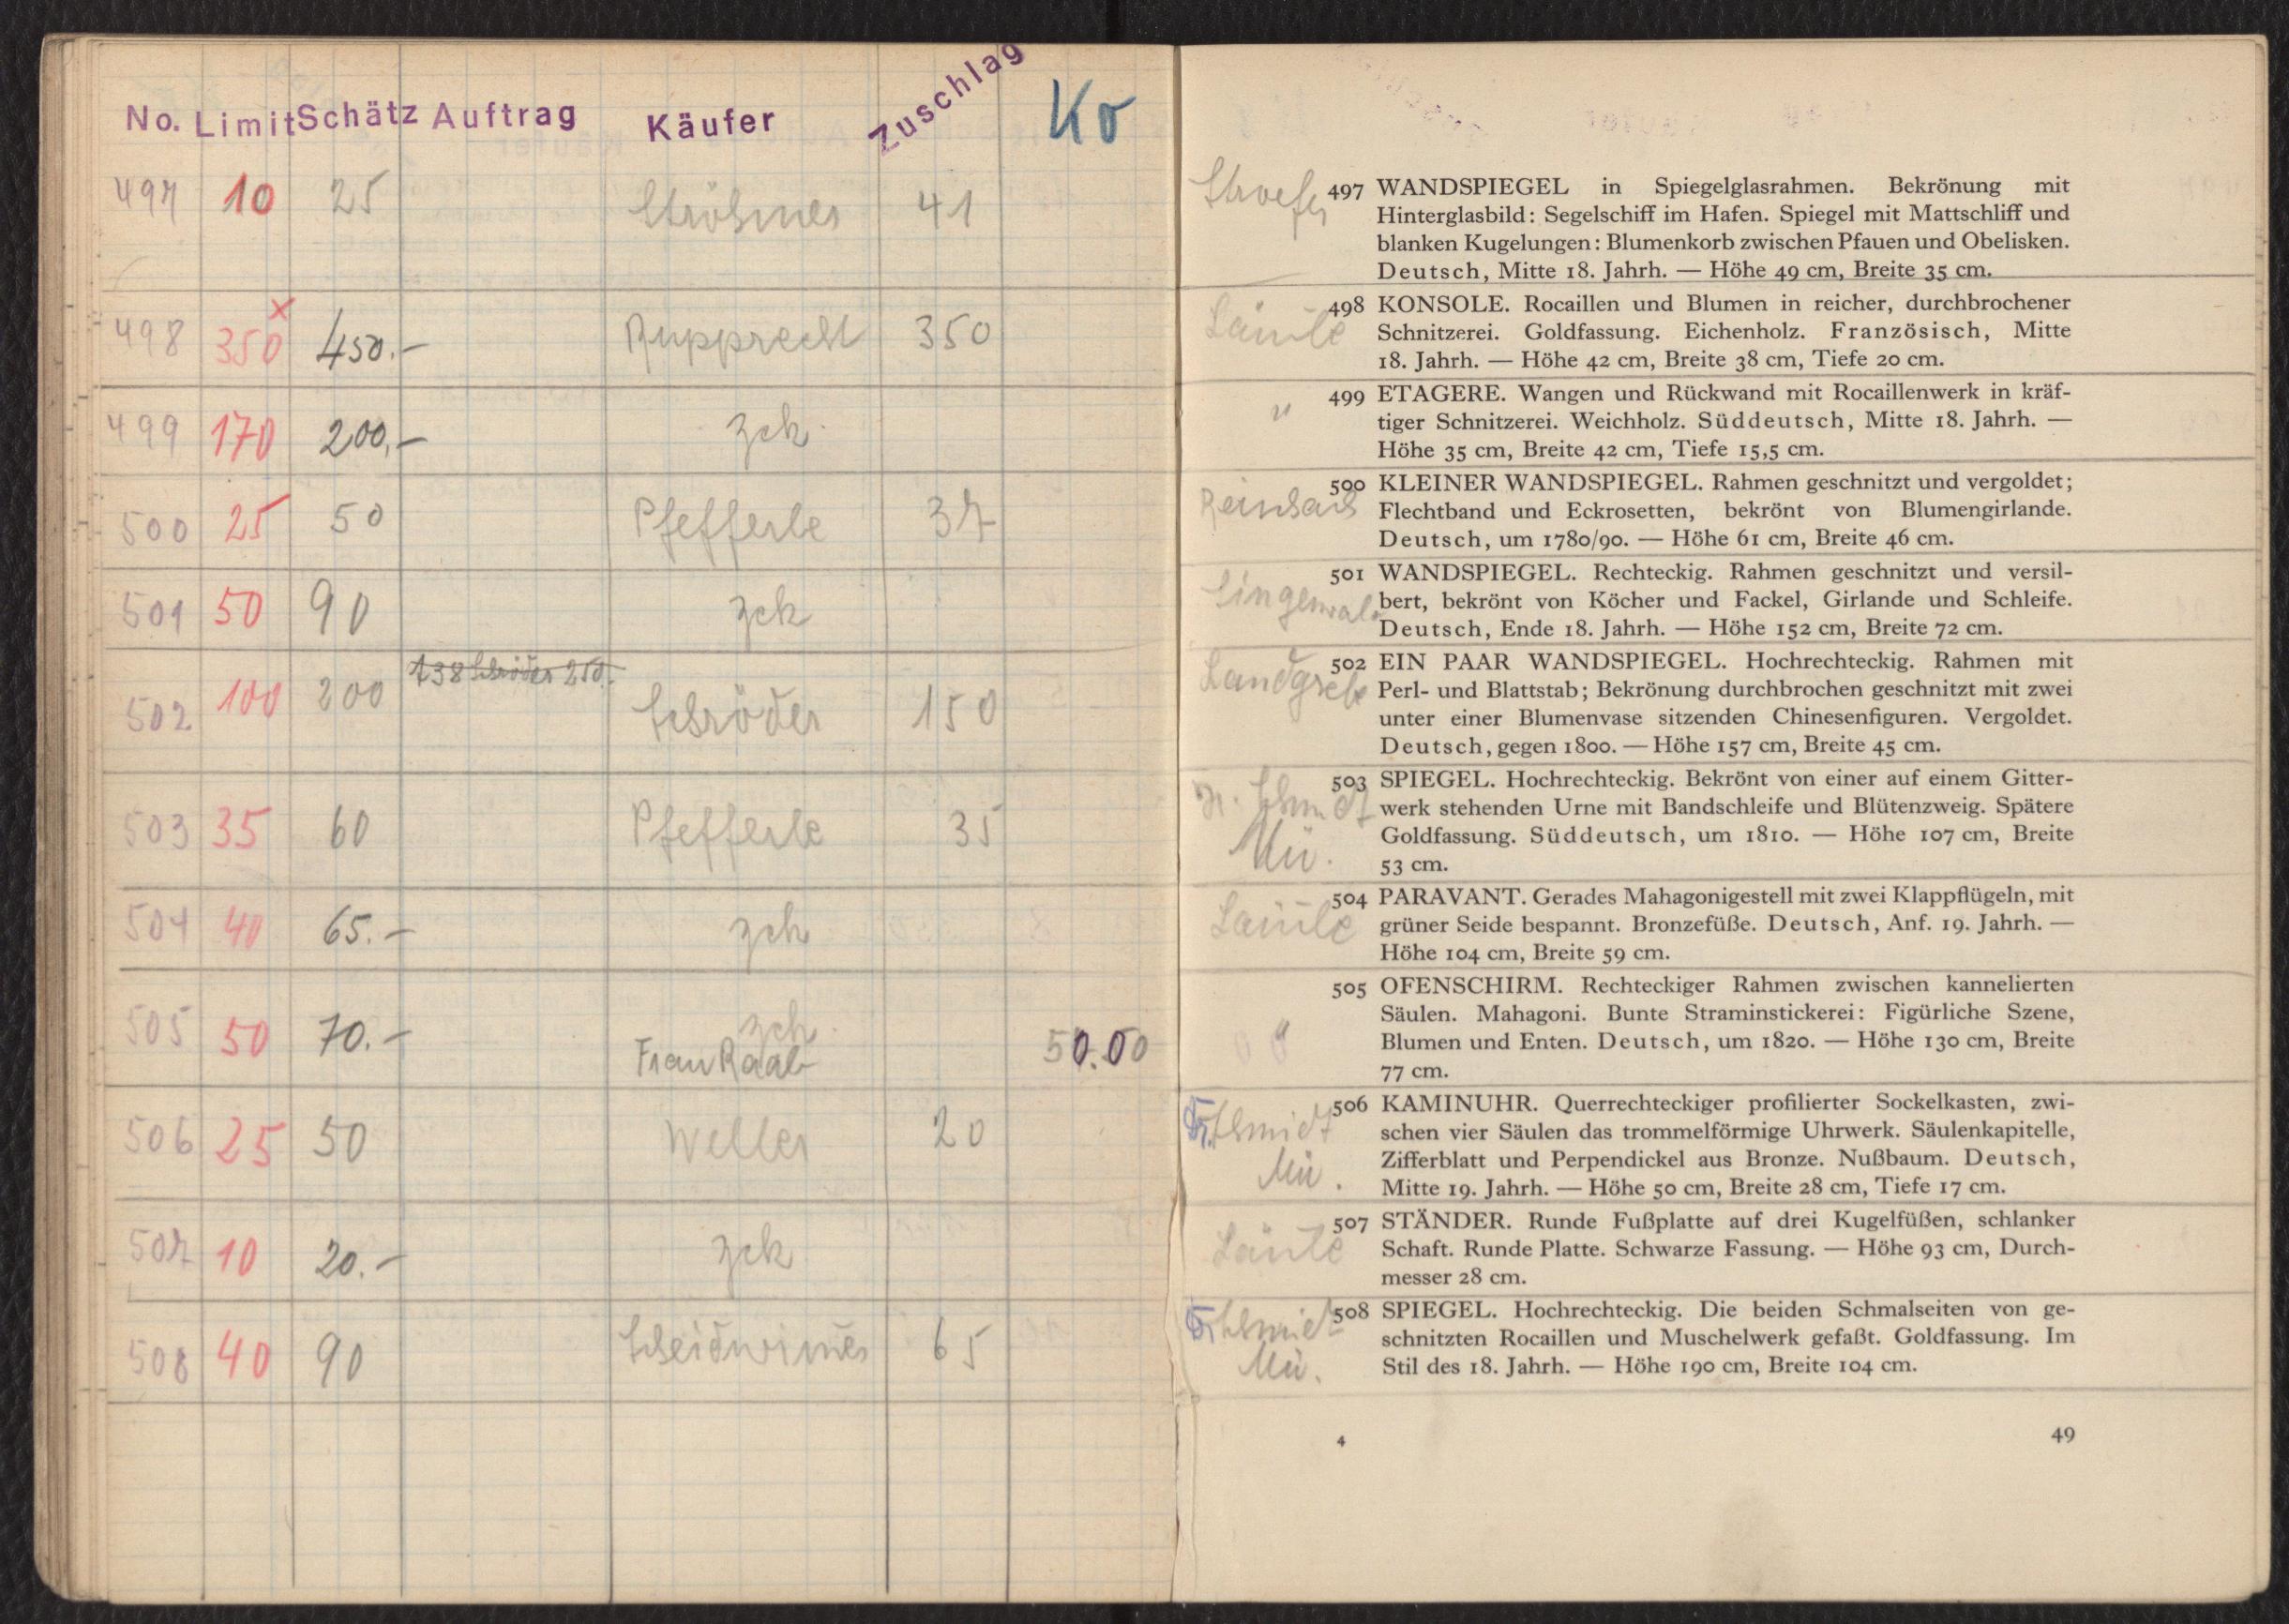 No. Limit Schätz Auftrag Käufer Zuschlag Ko
497 10 25 Ströhmer 41
498 350 x 450.- Rupprecht 350
499 170 200,- zck
500 25 50 Pfefferle 37
501 50 90 zck
138 Schröder 250.-
502 100 200 Schröder 150
503 35 60 Pfefferle 35
504 40 65.- zck
505 50 70.- zck
Frau Raab 50.00
506 25 50 Weller 20
507 10 20.- zck
508 40 90 Scheidwimmer 65
497 WANDSPIEGEL in Spiegelglasrahmen. Bekrönung mit
Hinterglasbild: Segelschiff im Hafen. Spiegel mit Mattschliff und
blanken Kugelungen: Blumenkorb zwischen Pfauen und Obelisken.
Deutsch, Mitte 18. Jahrh. — Höhe 49 cm, Breite 35 cm.
498 KONSOLE. Rocaillen und Blumen in reicher, durchbrochener
Läuile Schnitzerei. Goldfassung. Eichenholz. Französisch, Mitte
18. Jahrh. — Höhe 42 cm, Breite 38 cm, Tiefe 20 cm.
499 ETAGERE. Wangen und Rückwand mit Rocaillenwerk in kräf-
" tiger Schnitzerei. Weichholz. Süddeutsch, Mitte 18. Jahrh. —
Höhe 35 cm, Breite 42 cm, Tiefe 15,5 cm.
500 KLEINER WANDSPIEGEL. Rahmen geschnitzt und vergoldet;
Flechtband und Eckrosetten, bekrönt von Blumengirlande.
Deutsch, um 1780/90. — Höhe 61 cm, Breite 46 cm.
501 WANDSPIEGEL. Rechteckig. Rahmen geschnitzt und versil-
Singenwald bert, bekrönt von Köcher und Fackel, Girlande und Schleife.
Deutsch, Ende 18. Jahrh. — Höhe 152 cm, Breite 72 cm.
502 EIN PAAR WANDSPIEGEL. Hochrechteckig. Rahmen mit
Landgrebe Perl- und Blattstab; Bekrönung durchbrochen geschnitzt mit zwei
unter einer Blumenvase sitzenden Chinesenfiguren. Vergoldet.
Deutsch, gegen 1800. — Höhe 157 cm, Breite 45 cm.
503 SPIEGEL. Hochrechteckig. Bekrönt von einer auf einem Gitter-
Schmidt werk stehenden Urne mit Bandschleife und Blütenzweig. Spätere
Mü. Goldfassung. Süddeutsch, um 1810. — Höhe 107 cm, Breite
53 cm.
504 PARAVANT. Gerades Mahagonigestell mit zwei Klappflügeln, mit
grüner Seide bespannt. Bronzefüße. Deutsch, Anf. 19. Jahrh. —
Höhe 104 cm, Breite 59 cm.
505 OFENSCHIRM. Rechteckiger Rahmen zwischen kannelierten
Säulen. Mahagoni. Bunte Straminstickerei: Figürliche Szene,
Blumen und Enten. Deutsch, um 1820. — Höhe 130 cm, Breite
77 cm.
506 KAMINUHR. Querrechteckiger profilierter Sockelkasten, zwi-
Schmidt schen vier Säulen das trommelförmige Uhrwerk. Säulenkapitelle,
Mü. Zifferblatt und Perpendickel aus Bronze. Nußbaum. Deutsch,
Mitte 19. Jahrh. — Höhe 50 cm, Breite 28 cm, Tiefe 17 cm.
507 STÄNDER. Runde Fußplatte auf drei Kugelfüßen, schlanker
Schaft. Runde Platte. Schwarze Fassung. — Höhe 93 cm, Durch-
messer 28 cm.
508 SPIEGEL. Hochrechteckig. Die beiden Schmalseiten von ge-
Schmidt schnitzten Rocaillen und Muschelwerk gefaßt. Goldfassung. Im
Mü. Stil des 18. Jahrh. — Höhe 190 cm, Breite 104 cm.
4 49